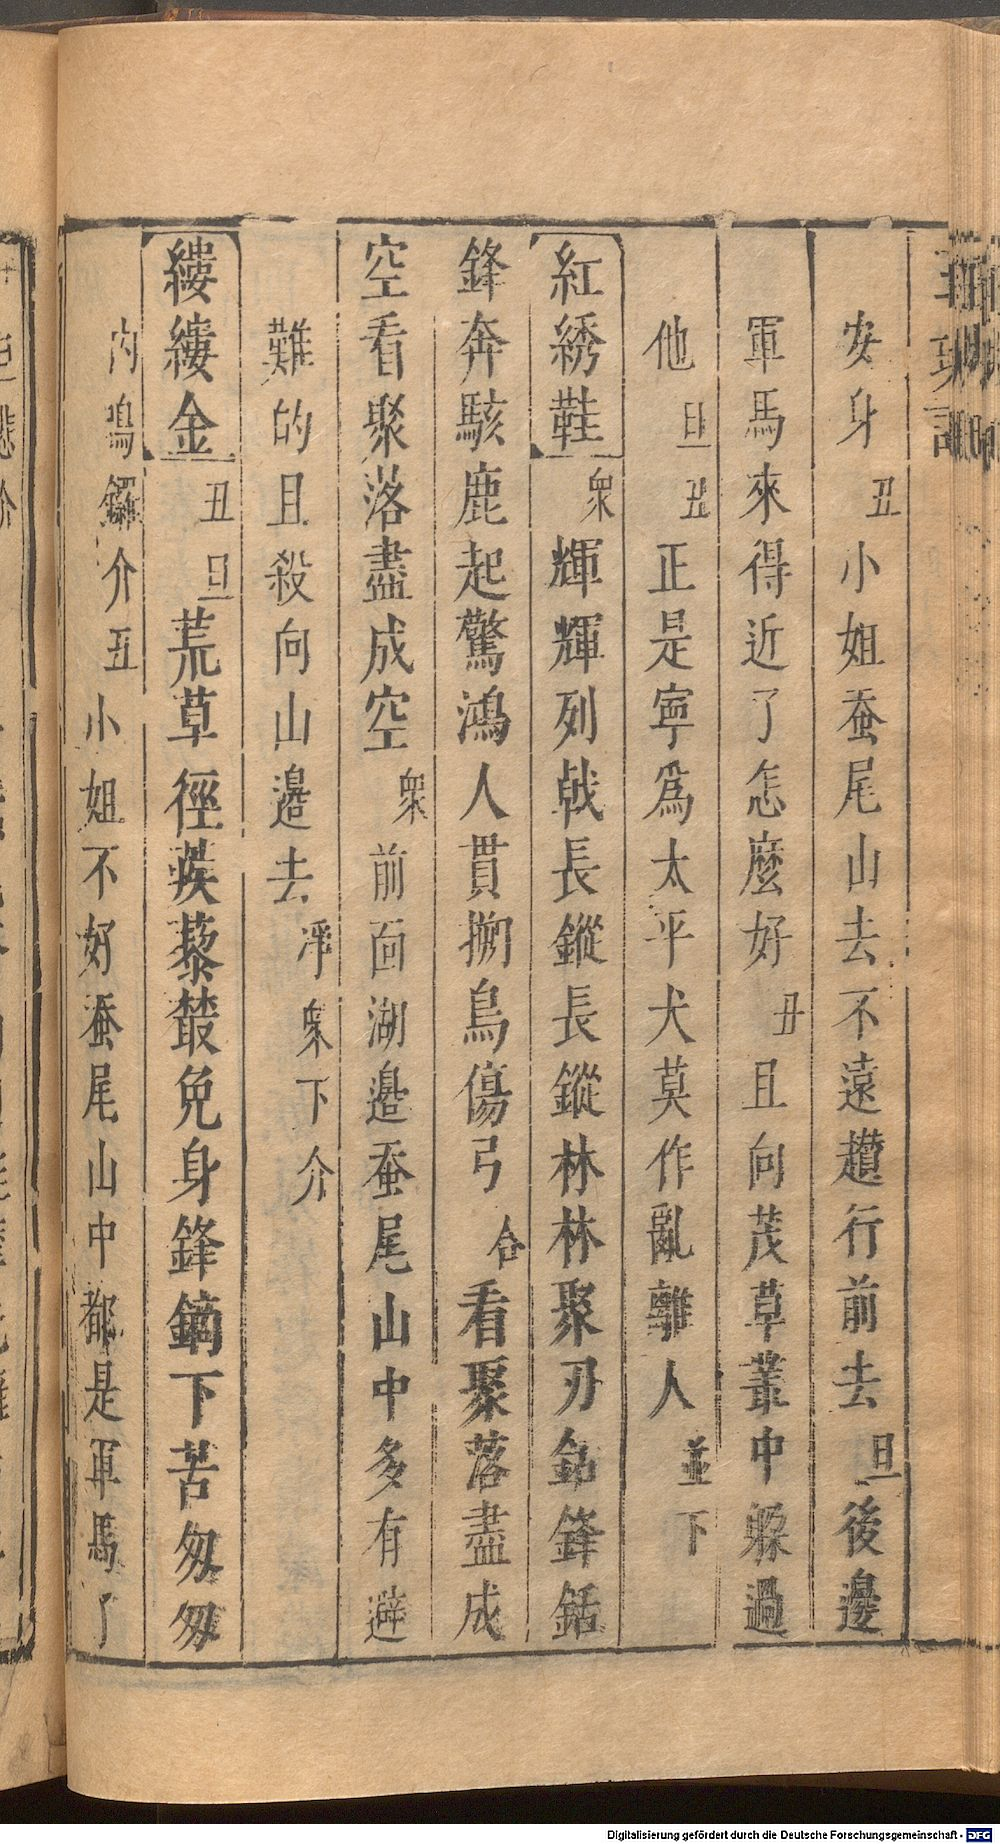 安身丑小姐蚕尾山去不遠趲行前去旦後邊
軍馬來得近了怎麽好丑且向茂草叢中躱過
他旦丑正是寜爲太平犬莫作亂離人並下
紅綉鞋衆輝輝列戟長鏦長鏦林林聚刃銛鋒銛
鋒奔駭鹿起驚鴻人貫搠鳥傷弓合看聚落盡成
空看聚落盡成空衆前面湖邉蚕尾山中多有避
難的且殺向山邉去淨衆下介
縷縷金丑旦荒草徑蒺藜叢免身鋒鏑下苦匆匆
内鳴鑼介丑小姐不好蚕尾山中都是軍馬了
Digitalisierung gefördert durch die Deutsche Forschungsgemeinschaft - DFG